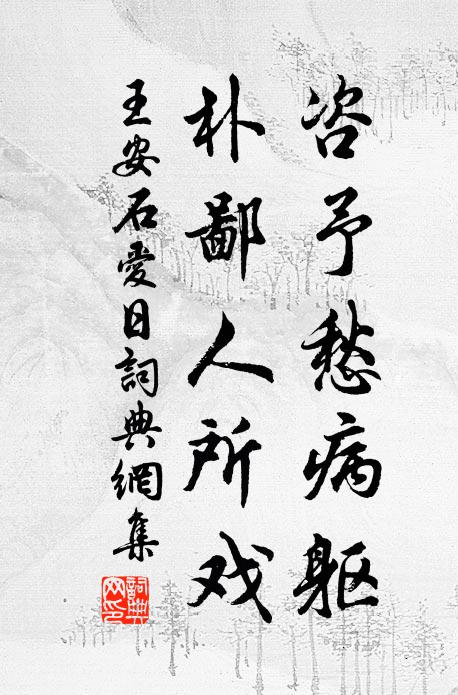 咨予愁病躯
朴鄙人所戏
王安石爱日詞典網集
詞典网印